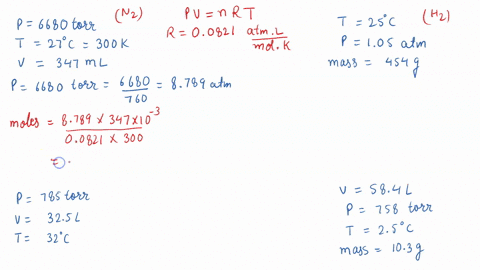 P = 6680 torr (N₂)
T = 27°C = 300 K
V = 347 mL
P = 6680 torr = 6680/760 = 8.789 atm
moles = 8.789 × 347×10⁻³ / 0.0821 × 300
PV = nRT
R = 0.0821 atm.L/mol.K
T = 25°C (H₂)
P = 1.05 atm
mass = 454 g
P = 785 torr
V = 32.5 L
T = 32°C
V = 58.4 L
P = 758 torr
T = 2.5°C
mass = 10.3 g